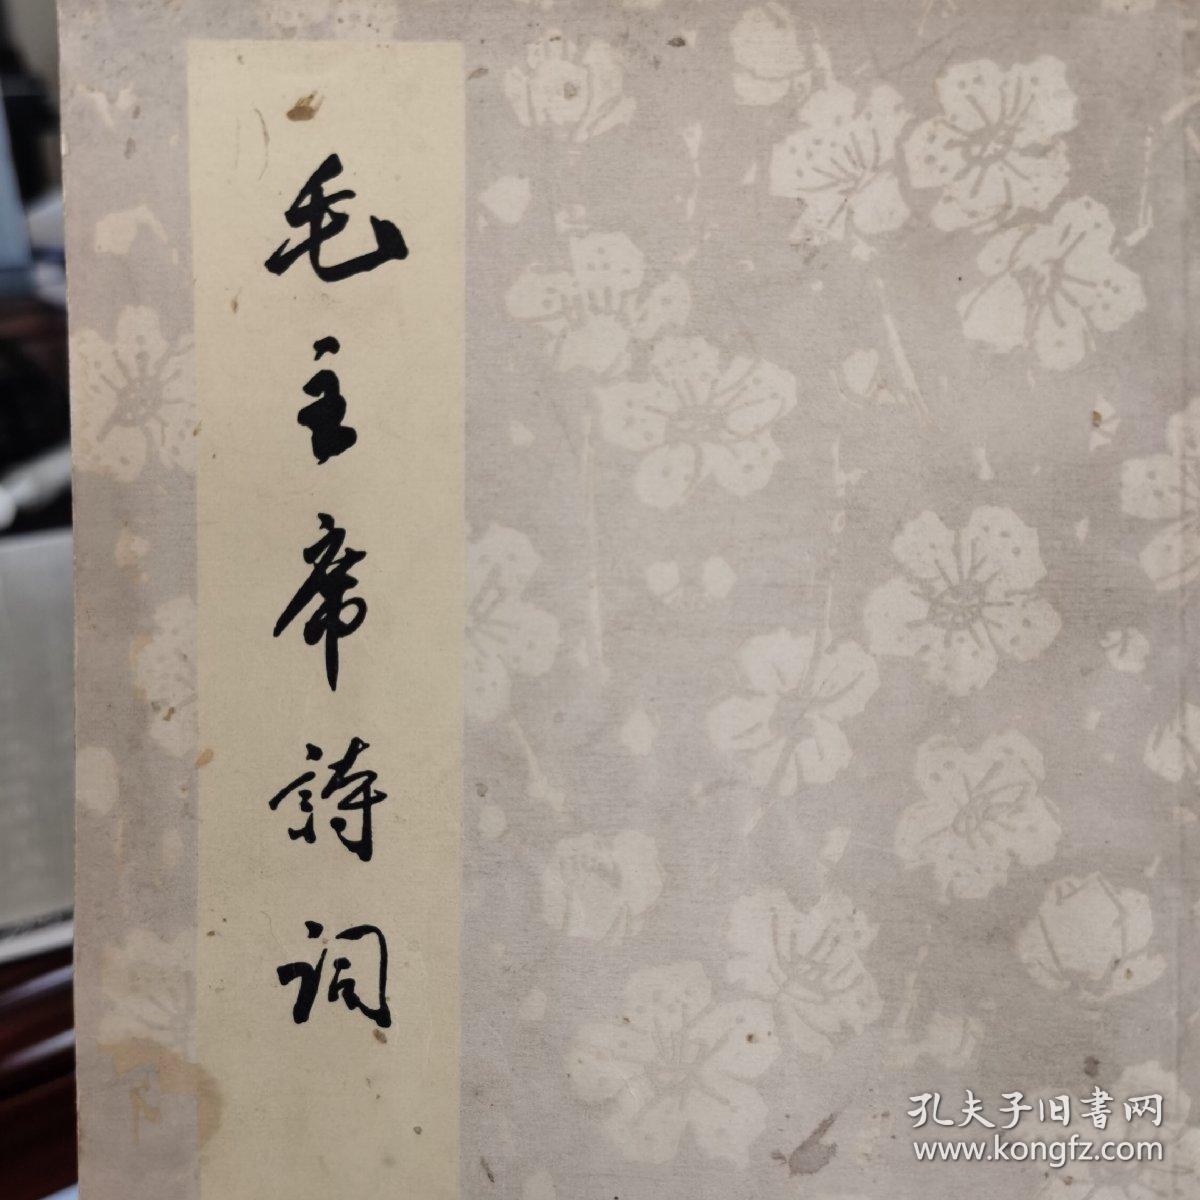 毛主席詩词
孔夫子旧書网
www.kongfz.com